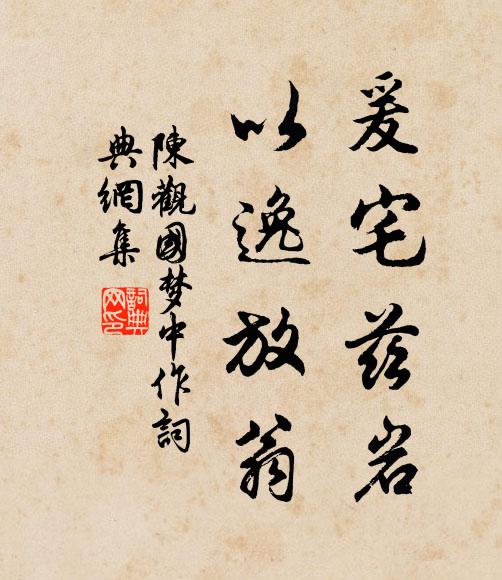 爰宅茲岩
以逸放翁
陳觀國梦中作詞
典網集
詞典
网印